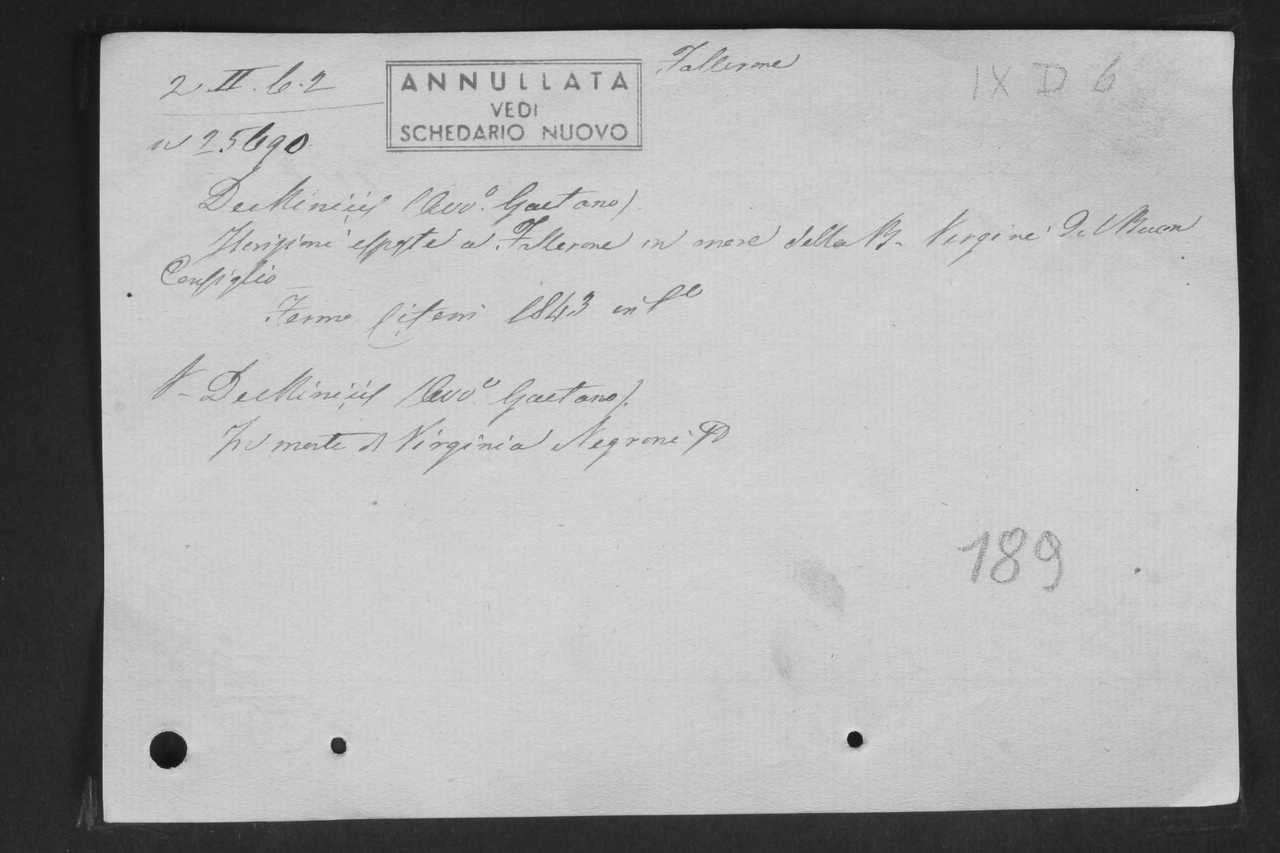 2. II. 6. 2
ANNULLATA
VEDI
SCHEDARIO NUOVO
Fallerone
IX D 6
n 25690
DeMinicis (Avv.º Gaetano)
Iscrizioni esposte a Fallerone in onore della B. Vergine del Buon
Consiglio
Fermo Ciferri 1843 in fº
N- DeMinicis (Avv.º Gaetano).
In morte di Virginia Negroni
189